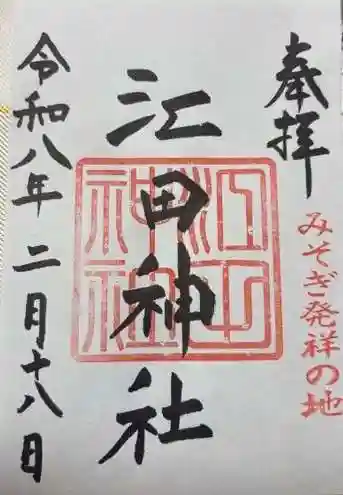 奉拝
みそぎ発祥の地
江田神社
江田神社
令和八年二月十八日